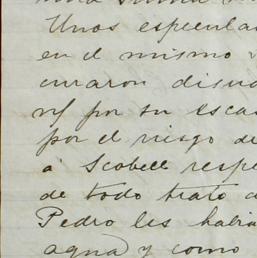 Unos especula
en el mismo
curaron disua
por su escas
por el riesgo de
á Scobell respe
de todo trato
Pedro les habia
agua y como